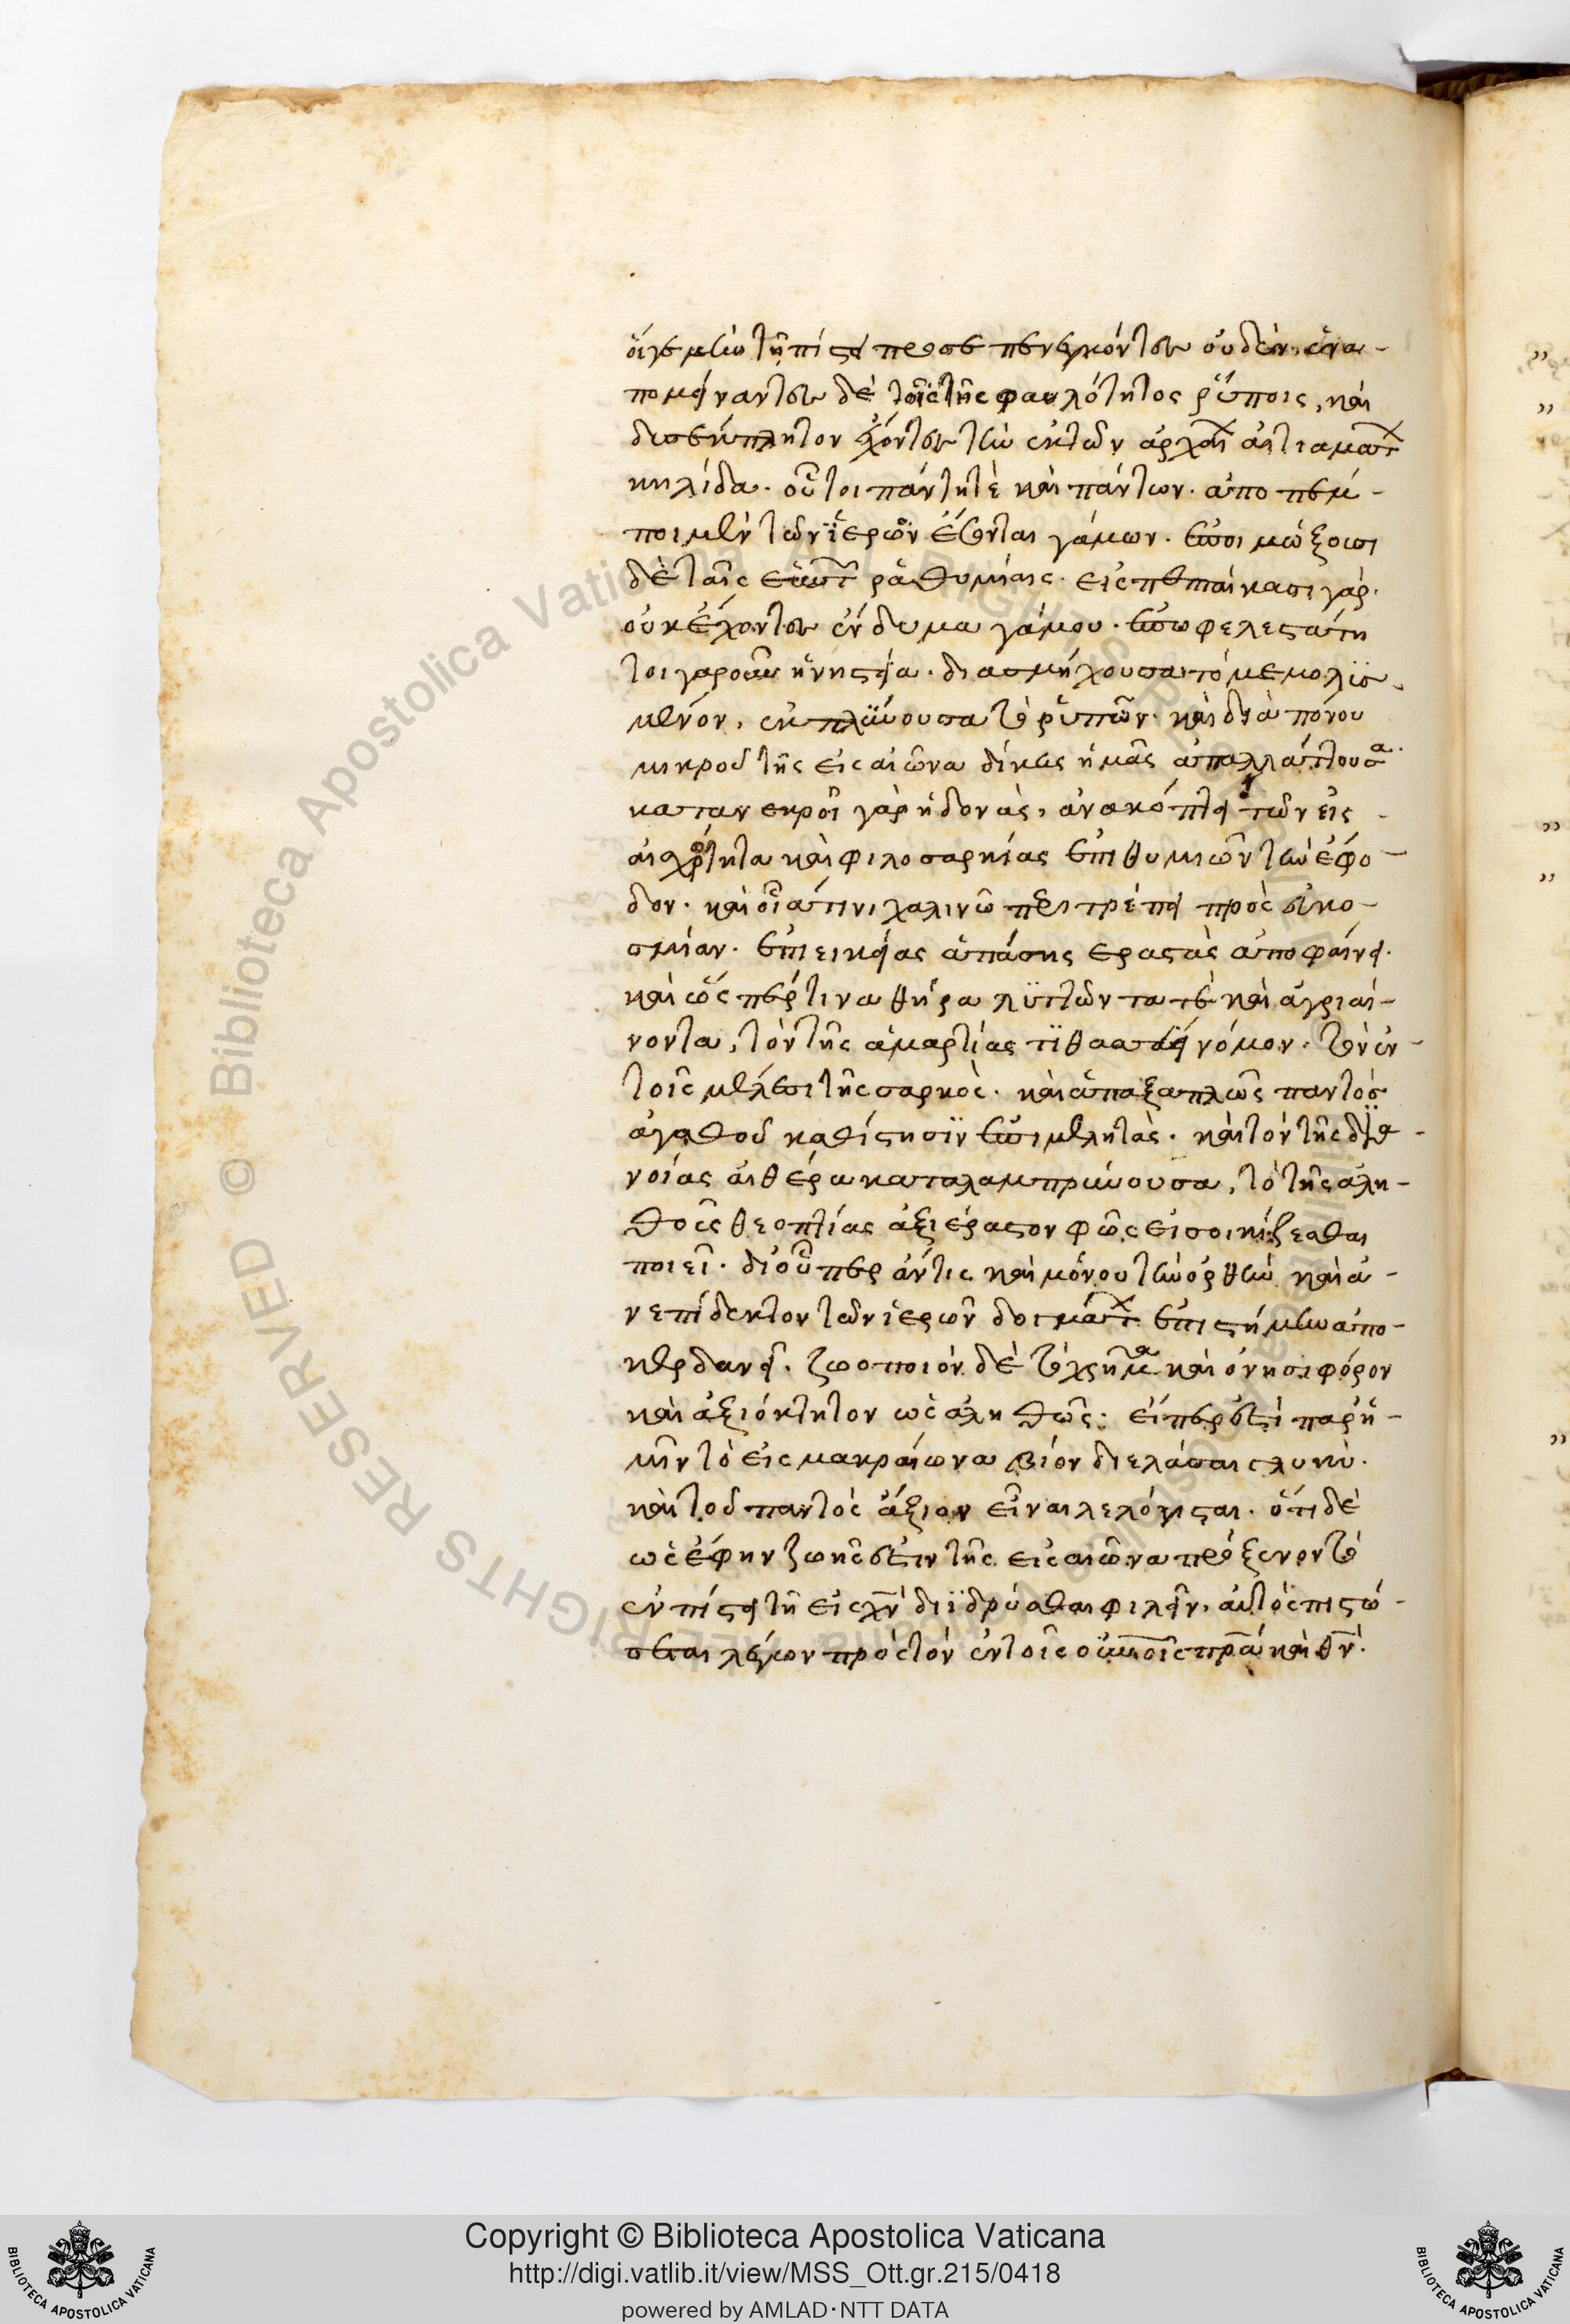 οἵγε μὲν τῇ πίστει προσεπενεγκόντες οὐδὲν, ἐνα-
πομείναντες δὲ τοῖς τῆς φαυλότητος ῥύποις, καὶ
δυσέκπλητον ἔχοντες τὴν ἐκ τῶν ἀρχαί αἰτιαμάτ
κηλίδα. οὗτοι πάντη τὲ καὶ πάντων. ἀποπεμ-
ποι μὲν τῶν ἱερῶν ἔσονται γάμων.
δὲ ταῖς ἑαυτ ῥαθυμίαις. εἰσπεπαίκασι γάρ.
οὐκ ἔχοντες ἔνδυμα γάμου. ἐπωφελεστάτη
τοιγαροῦν ἡ νηστεία. διασμήχουσα τὸ μεμολϊσ-
μένον, ἐκπλύνουσα τὸ ῥυπῶν. καὶ διὰ πόνου
μικροῦ τῆς εἰς αἰῶνα δίκης ἡμᾶς ἀπαλλάττουσα.
κατανεκροῖ γὰρ ἡδονὰς, ἀνακόπτει τῶν εἰς
αἰσχρότητα καὶ φιλοσαρκίας ἐπιθυμιῶν τὴν ἔφο-
δον. καὶ οἷά τινι χαλινῷ περιτρέπει πρὸς εὐκο-
σμίαν. ἐπιεικείας ἁπάσης ἐραστὰς ἀποφαίνει.
καὶ ὥσπέρ τινα θῆρα λυττῶντα τὲ καὶ ἀγριαί-
νοντα, τὸν τῆς ἁμαρτίας τιθασσεύει νόμον. τὸν ἐν
τοῖς μέλεσι τῆς σαρκὸς. καὶ ἁπαξαπλῶς παντὸς
ἀγαθοῦ καθίστησιν ἐπιμελητὰς. καὶ τὸν τῆς δια-
νοίας αἰθέρα καταλαμπρύνουσα, τὸ τῆς ἀλη-
θοῦς θεοπτίας ἀξιέραστον φῶς εἰσοικίζεσθαι
ποιεῖ. δι οὗπερ ἄν τις καὶ μόνου τὴν ὀρθὴν καὶ ἀ-
νεπίδεκτον τῶν ἱερῶν δογμάτ ἐπιστήμην ἀπο-
κερδανεῖ. ζωοποιὸν δὲ τὸ χρῆμα καὶ ὀνησιφόρον
καὶ ἀξιόκτητον ὡς ἀληθῶς. εἴπερ ἐστὶ παρ ἡ-
μῖν τὸ εἰς μακραίωνα βίον διελάσαι γλυκὺ.
καὶ τοῦ παντὸς ἄξιον εἶναι λελόγισται. ὅτι δὲ
ὡς ἔφην ζωῆς ἐστιν τῆς εἰς αἰῶνα πρόξενον τὸ
ἐν πίστει τῇ εἰς χν διϊδρύσθαι φιλεῖν, αὐτὸς πιστώ-
σεται λέγων πρὸς τὸν ἐν τοῖς οὐνοῖς πρα καὶ θν.
Copyright © Biblioteca Apostolica Vaticana
http://digi.vatlib.it/view/MSS_Ott.gr.215/0418
powered by AMLAD·NTT DATA
BIBLIOTECA APOSTOLICA VATICANA
BIBLIOTECA APOSTOLICA VATICANA
© Biblioteca Apostolica Vaticana ALL RIGHTS RESERVED